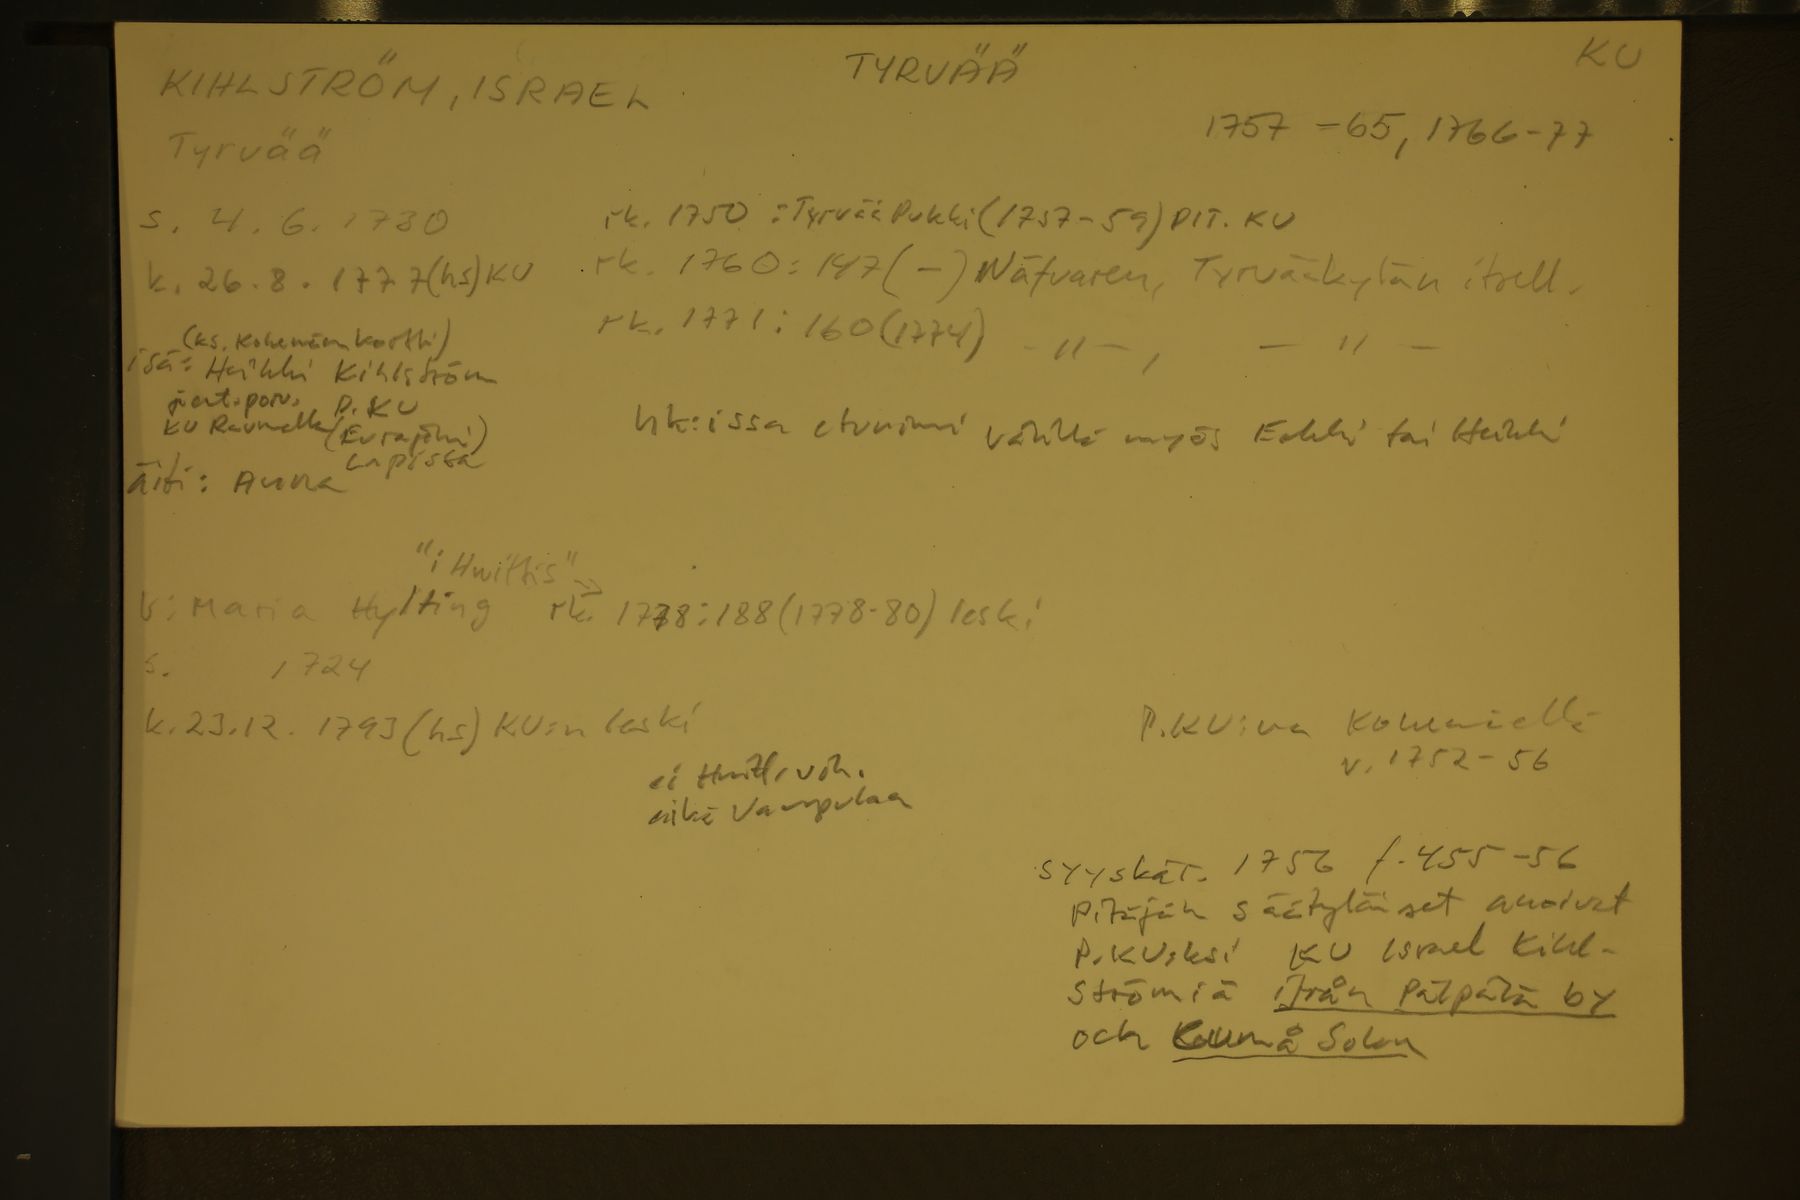 KU
TYRVÄÄ
KIHLSTRÖM, ISRAEL
1757 - 65, 1766 - 77
Tyrvää
s. 4. 6. 1730
rk. 1750 : Tyrvää Pukki (1757 - 59) PIT. KU
k. 26. 8. 1777 (hs) KU
rk. 1760: 147 ( - ) Näfvaren, Tyrvääkylän itsell.
rk. 1771: 160 (1774) - " - , - " -
(ks. Kokemäen kortti)
isä: Heikki Kihlström
P. KU
KU Raumalla (Eurajoki)
Lapissa
hk:issa etunimi välillä myös Erkki tai Heikki
äiti: Anna
"i Huittis"
v: Maria Hylting rk. 1778: 188 (1778 - 80) leski
s. 1724
k. 23. 12. 1793 (hs) KU:n leski
P. KU:na Kokemäellä
v. 1752 - 56
ei Huitt. vih.
eikä Vampulaa
syyskär. 1756 f. 455 - 56
Pitäjän säätyläiset anoivat
P. KU:ksi KU Israel Kihl-
strömiä ifrån Pälpälä by
och Kaumå Sokn